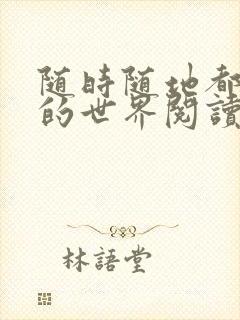 随時随地都
的世界閱讀
林語堂